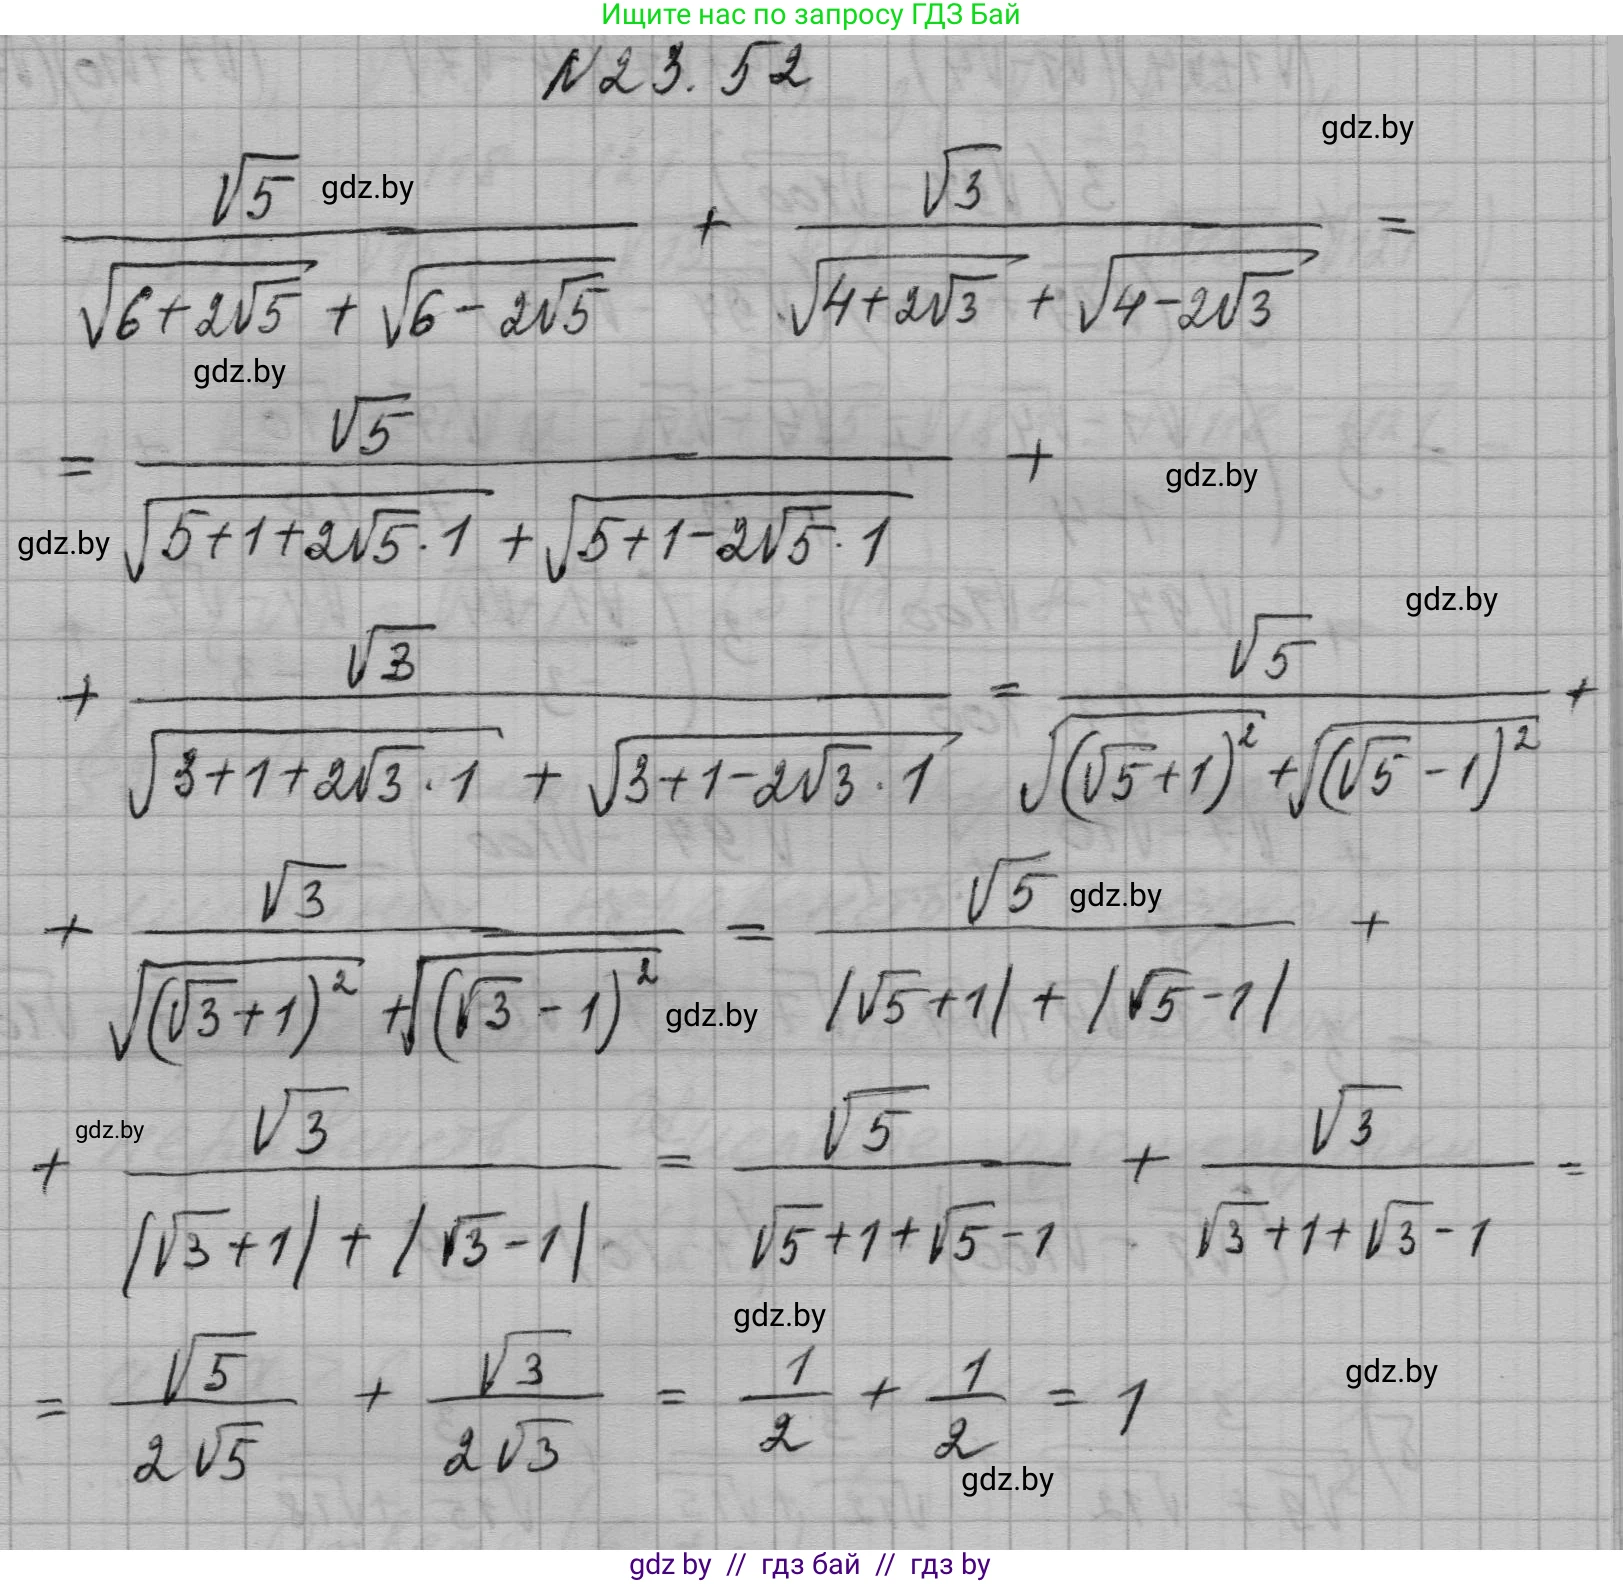 Ищите нас по запросу ГДЗ Бай
N23.52
gdz.by
√5/(√(6+2√5) + √(6-2√5)) + √3/(√(4+2√3) + √(4-2√3)) =
gdz.by
gdz.by
= √5/(√(5+1+2√5·1) + √(5+1-2√5·1)) +
gdz.by
gdz.by
gdz.by
+ √3/(√(3+1+2√3·1) + √(3+1-2√3·1)) = √5/(√((√5+1)²) + √((√5-1)²)) +
+ √3/(√((√3+1)²) + √((√3-1)²)) = √5/(|√5+1| + |√5-1|) +
gdz.by
gdz.by
gdz.by
+ √3/(|√3+1| + |√3-1|) = √5/(√5+1+√5-1) + √3/(√3+1+√3-1) =
gdz.by
= √5/(2√5) + √3/(2√3) = 1/2 + 1/2 = 1
gdz.by
gdz.by
gdz by // гдз бай // гдз by